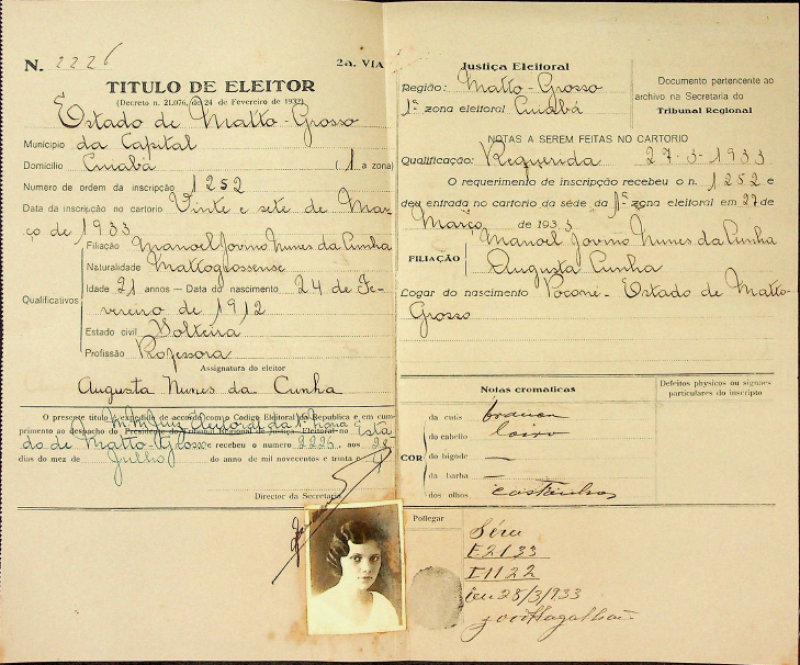 N. 2226
2a. VIA
TITULO DE ELEITOR
(Decreto n. 21.076, de 24 de Fevereiro de 1932)
Estado de Matto-Grosso
Municipio da Capital
Domicilio Cuiabá (1a zona)
Numero de ordem da inscripção 1252
Data da inscripção no cartorio Vinte e sete de Mar
ço de 1933
Filiação Manoel Jovino Nunes da Cunha
Naturalidade Mattogrossense
Qualificativos
Idade 21 annos — Data do nascimento 24 de Fe-
vereiro de 1912
Estado civil Solteira
Profissão Professora
Assignatura do eleitor
Augusta Nunes da Cunha
O presente titulo é expedido de accordo com o Codigo Eleitoral da Republica e em cum-
primento ao despacho do Presidente do Tribunal Regional de Justiça Eleitoral no Esta
M. Juiz Eleitoral da 1ª Zona
do de Matto-Grosso e recebeu o numero 2226, aos 28
dias do mez de Julho do anno de mil novecentos e trinta e 4
Director da Secretaria
Justiça Eleitoral
Região: Matto-Grosso
1ª zona eleitoral Cuiabá
Documento pertencente ao
archivo na Secretaria do
Tribunal Regional
NOTAS A SEREM FEITAS NO CARTORIO
Qualificação: Requerida 27-3-1933
O requerimento de inscripção recebeu o n. 1252 e
deu entrada no cartorio da séde da 1ª zona eleitoral em 27 de
Março de 1933
FILIAÇÃO
Manoel Jovino Nunes da Cunha
Augusta Cunha
Logar do nascimento Poconé - Estado de Matto-
Grosso
Notas cromaticas
Defeitos physicos ou signaes
particulares do inscripto
COR
da cutis branca
do cabello loiro
do bigode —
da barba —
dos olhos castanhos
Pollegar
Série
E2133
I1122
em 28/3/933